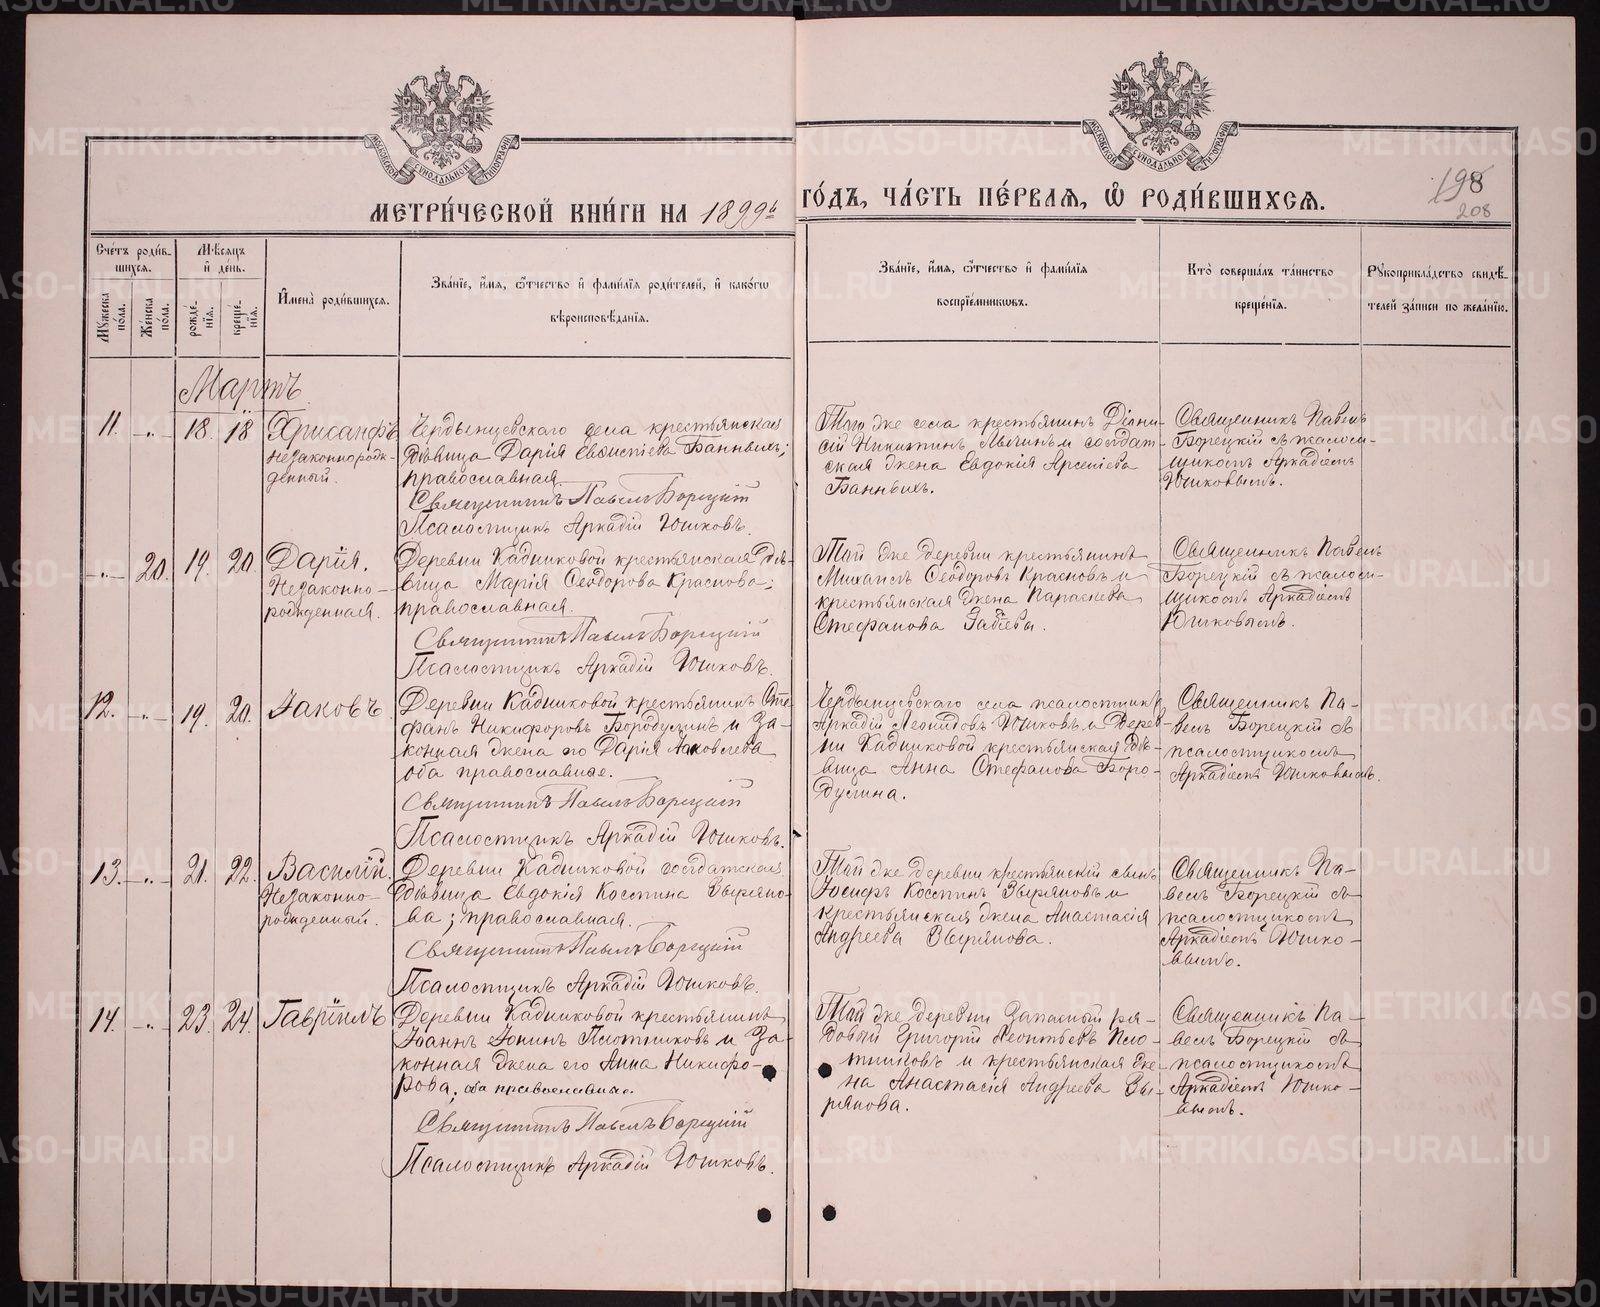 МЕТРИ́ЧЕСКОЙ КНИ́ГИ НА 1899й
ГО́ДЪ, ЧА́СТЬ ПЕ́РВАѦ, Ѡ҆ РОДИ́ВШИХСѦ.
198
208
Сче́тъ роди́в-
шихсѧ.
Мꙋ́жеска по́ла.
Же́нска по́ла.
Мѣ́сѧцъ
и҆ де́нь.
рожде́-
нїѧ.
креще́-
нїѧ.
И҆мена̀ роди́вшихсѧ.
Зва́нїе, и҆́мѧ, ѻ҆́тчество и҆ фами́лїѧ роди́телей, и҆ како́гѡ
вѣроисповѣ́данїѧ.
Зва́нїе, и҆́мѧ, ѻ҆́тчество и҆ фами́лїѧ
воспрїе́мникѡвъ.
Кто̀ соверша́лъ та́инство
креще́нїѧ.
Рꙋкоприкла́дство свидѣ́-
телей за́писи по жела́нїю.
Мартъ
11. -„- 18. 18
Хрисанфъ
незаконнорож-
денный.
Чердынцевскаго села крестьянская
дѣвица Дарія Евѳистіева Банныхъ;
православная.
Священникъ Павелъ Борецкій
Псаломщикъ Аркадій Юшковъ.
Того же села крестьянинъ Діони-
сій Никитинъ Лычинъ и солдат-
ская жена Евдокія Арсеніева
Банныхъ.
Священникъ Павелъ
Борецкій съ псалом-
щикомъ Аркадіемъ
Юшковымъ.
-„- 20. 19. 20.
Дарія.
Незаконно-
рожденная.
Деревни Кадниковой крестьянская дѣ-
вица Марія Ѳеодорова Краснова;
православная.
Священникъ Павелъ Борецкій
Псаломщикъ Аркадій Юшковъ.
Той же деревни крестьянинъ
Михаилъ Ѳеодоровъ Красновъ и
крестьянская жена Параскева
Стефанова
Священникъ Павелъ
Борецкій съ псалом-
щикомъ Аркадіемъ
Юшковымъ.
12. -„- 19. 20.
Іаковъ
Деревни Кадниковой крестьянинъ Сте-
фанъ Никифоровъ Бородулинъ и за-
конная жена его Дарія Яковлева
оба православные.
Священникъ Павелъ Борецкій
Псаломщикъ Аркадій Юшковъ.
Чердынцевскаго села псаломщикъ
Аркадій Леонидовъ Юшковъ и дерев-
ни Кадниковой крестьянская дѣ-
вица Анна Стефанова Боро-
дулина.
Священникъ Па-
велъ Борецкій съ
псаломщикомъ
Аркадіемъ Юшковымъ.
13. -„- 21. 22.
Василій.
Незаконно-
рожденный.
Деревни Кадниковой солдатская
дѣвица Евдокія Костина Зыряно-
ва; православная.
Священникъ Павелъ Борецкій
Псаломщикъ Аркадій Юшковъ.
Той же деревни крестьянскій сынъ
Іосифъ Костинъ Зыряновъ и
крестьянская жена Анастасія
Андреева Зырянова.
Священникъ Па-
велъ Борецкій съ
псаломщикомъ
Аркадіемъ Юшко-
вымъ.
14. -„- 23. 24.
Гавріилъ
Деревни Кадниковой крестьянинъ
Іоаннъ Іонинъ Плотниковъ и за-
конная жена его Анна Никифо-
рова; оба православные.
Священникъ Павелъ Борецкій
Псаломщикъ Аркадій Юшковъ.
Той же деревни запасный ря-
довый Григорій Леонтьевъ Пло-
тниковъ и крестьянская же-
на Анастасія Андреева Зы-
рянова.
Священникъ Па-
велъ Борецкій съ
псаломщикомъ
Аркадіемъ Юшко-
вымъ.
METRIKI.GASO-URAL.RU